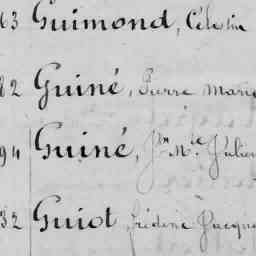 63 Guimond, Célestin
82 Guiné, Pierre Marie
94 Guiné, Jn Mie Julien
32 Guiot, Frédéric Jacques